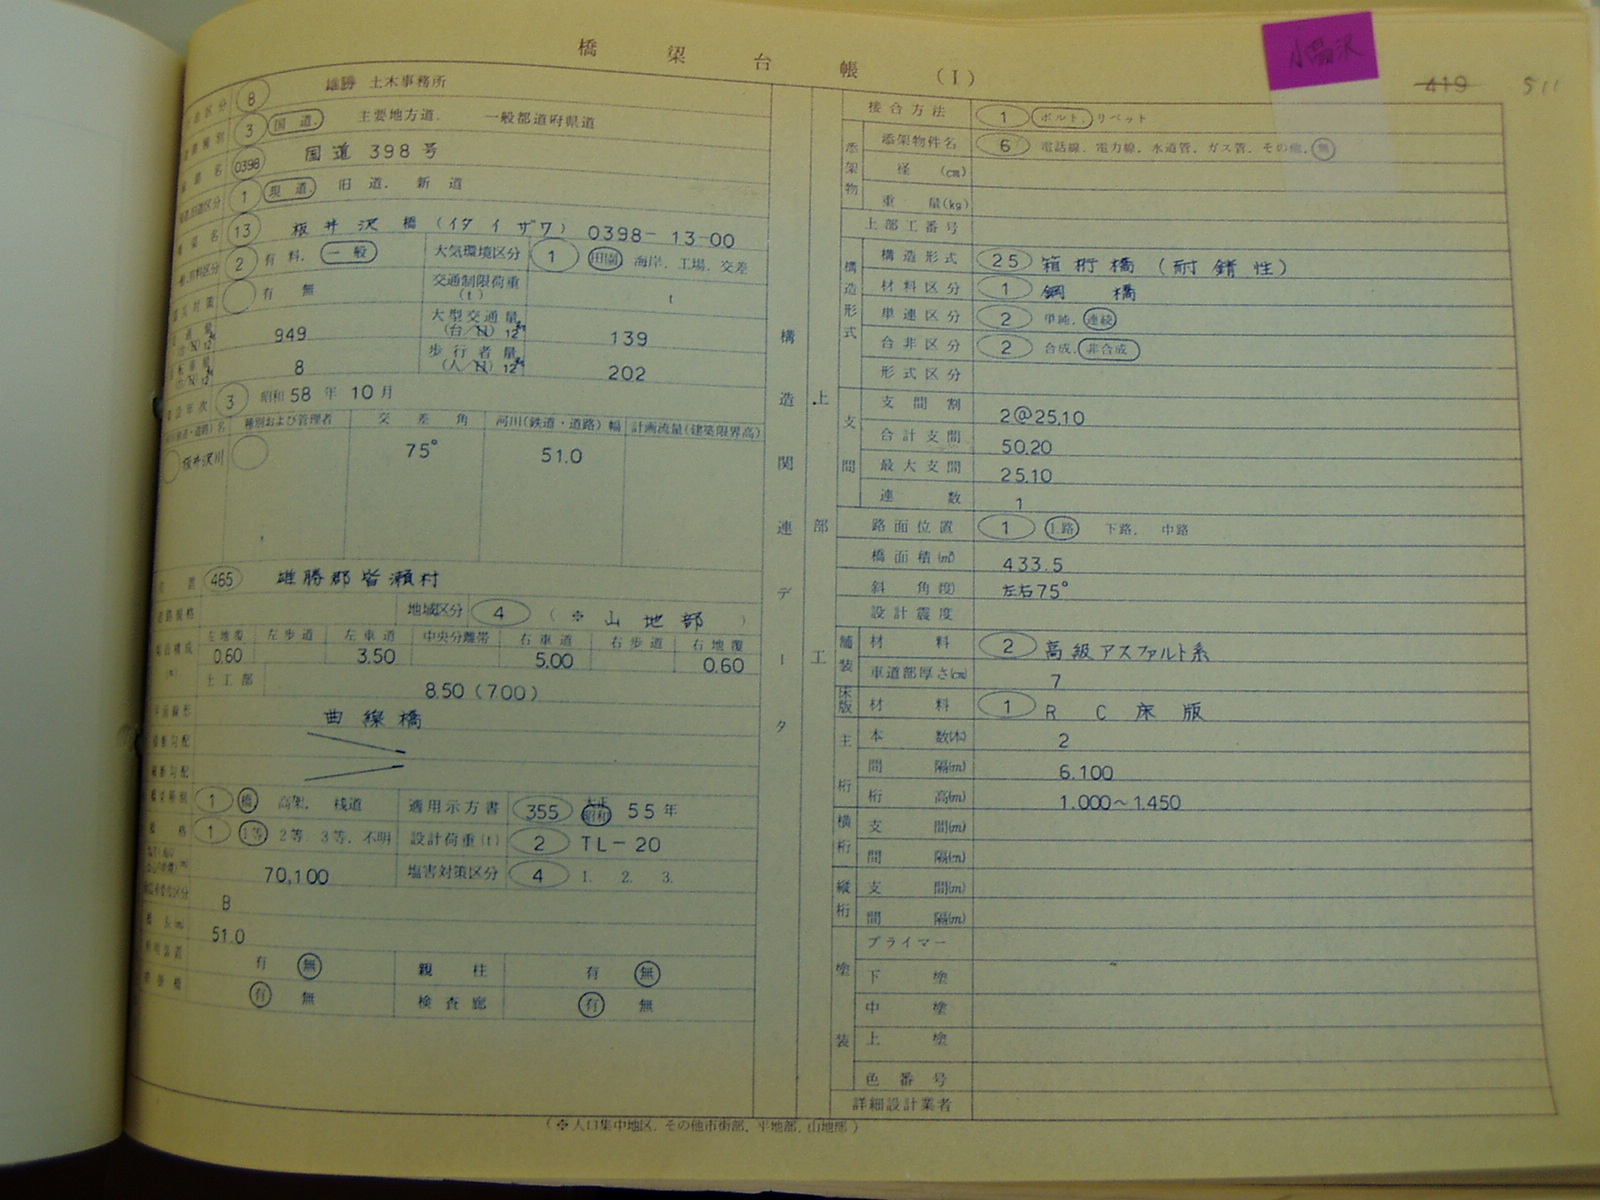 橋梁台帳(I)
419 511
8 雄勝 土木事務所
3 国道. 主要地方道. 一般都道府県道
0398 国道398号
1 現道. 旧道. 新道
13 板井沢橋(イタイザワ) 0398-13-00
2 有料. 一般 大気環境区分 1 田園 海岸. 工場. 交差
有 無 交通制限荷重(t) t
949 大型交通量(台/日)12 139
8 歩行者量(人/日)12 202
3 昭和58年10月
種別および管理者 交差角 河川(鉄道・道路)幅 計画流量(建築限界高)
板井沢川 75° 51.0
465 雄勝郡皆瀬村
道路規格 地域区分 4 (※山地部)
左地覆 左歩道 左車道 中央分離帯 右車道 右歩道 右地覆
0.60 3.50 5.00 0.60
土工部 8.50(7.00)
平面線形 曲線橋
横断勾配
橋梁種別 1 橋. 高架. 桟道 適用示方書 355 大正 昭和 55年
1 1等 2等. 3等. 不明 設計荷重(t) 2 TL-20
70,100 塩害対策区分 4 1. 2. 3.
B
橋長(m) 51.0
有 無 親柱 有 無
有 無 検査廊 有 無
構造関連データ
上部工
接合方法 1 ボルト. リベット
添架物 添架物件名 6 電話線. 電力線. 水道管. ガス管. その他. 無
径(cm)
重量(kg)
上部工番号
構造形式 構造形式 25 箱桁橋(耐錆性)
材料区分 1 鋼橋
単連区分 2 単純. 連続
合非区分 2 合成. 非合成
形式区分
支間 支間割 2@25.10
合計支間 50.20
最大支間 25.10
連数 1
路面位置 1 上路 下路. 中路
橋面積(㎡) 433.5
斜角(度) 左右75°
設計震度
舗装 材料 2 高級アスファルト系
車道部厚さ(cm) 7
床版 材料 1 RC床版
主桁 本数(本) 2
間隔(m) 6.100
桁高(m) 1.000~1.450
横桁 支間(m)
間隔(m)
縦桁 支間(m)
間隔(m)
塗装 プライマー
下塗
中塗
上塗
色番号
詳細設計業者
(※人口集中地区. その他市街部. 平地部. 山地部)